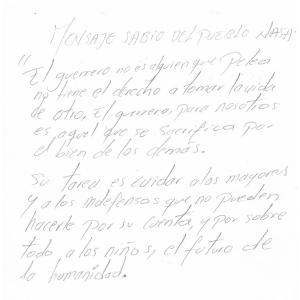 MENSAJE SABIO DEL PUEBLO NASA:
"El guerrero no es alguien que pelea
no tiene el derecho a tomar la vida
de otro, El guerrero, para nosotros
es aquel que se sacrifica por
el bien de los demás.
Su tarea es cuidar a los mayores
y a los indefensos que no pueden
hacerlo por su cuenta, y por sobre
todo, a los niños, el futuro de
la humanidad.